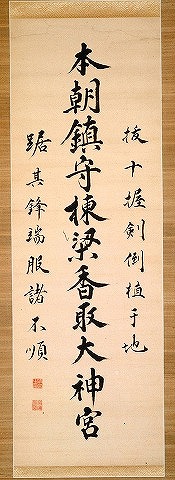 抜十握劍倒植于地
本朝鎮守棟梁香取大神宮
踞其鋒端服諸不順